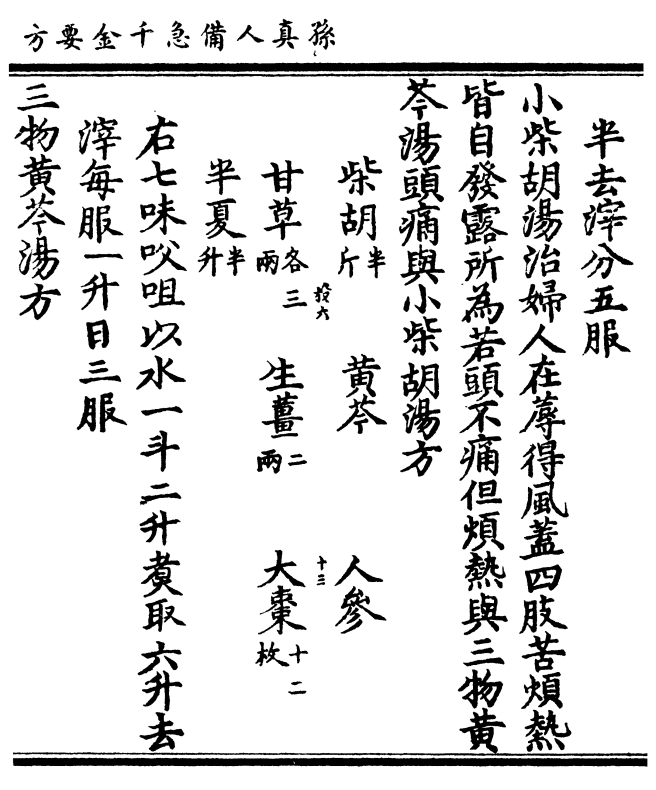 孫真人備急千金要方
半去滓分五服
小柴胡湯治婦人在蓐得風蓋四肢苦煩熱
皆自發露所為若頭不痛但煩熱與三物黃
芩湯頭痛與小柴胡湯方
柴胡半斤 黃芩 人參
投六 十三
甘草各三兩 生薑二兩 大棗十二枚
半夏半升
右七味㕮咀以水一斗二升煑取六升去
滓每服一升日三服
三物黃芩湯方